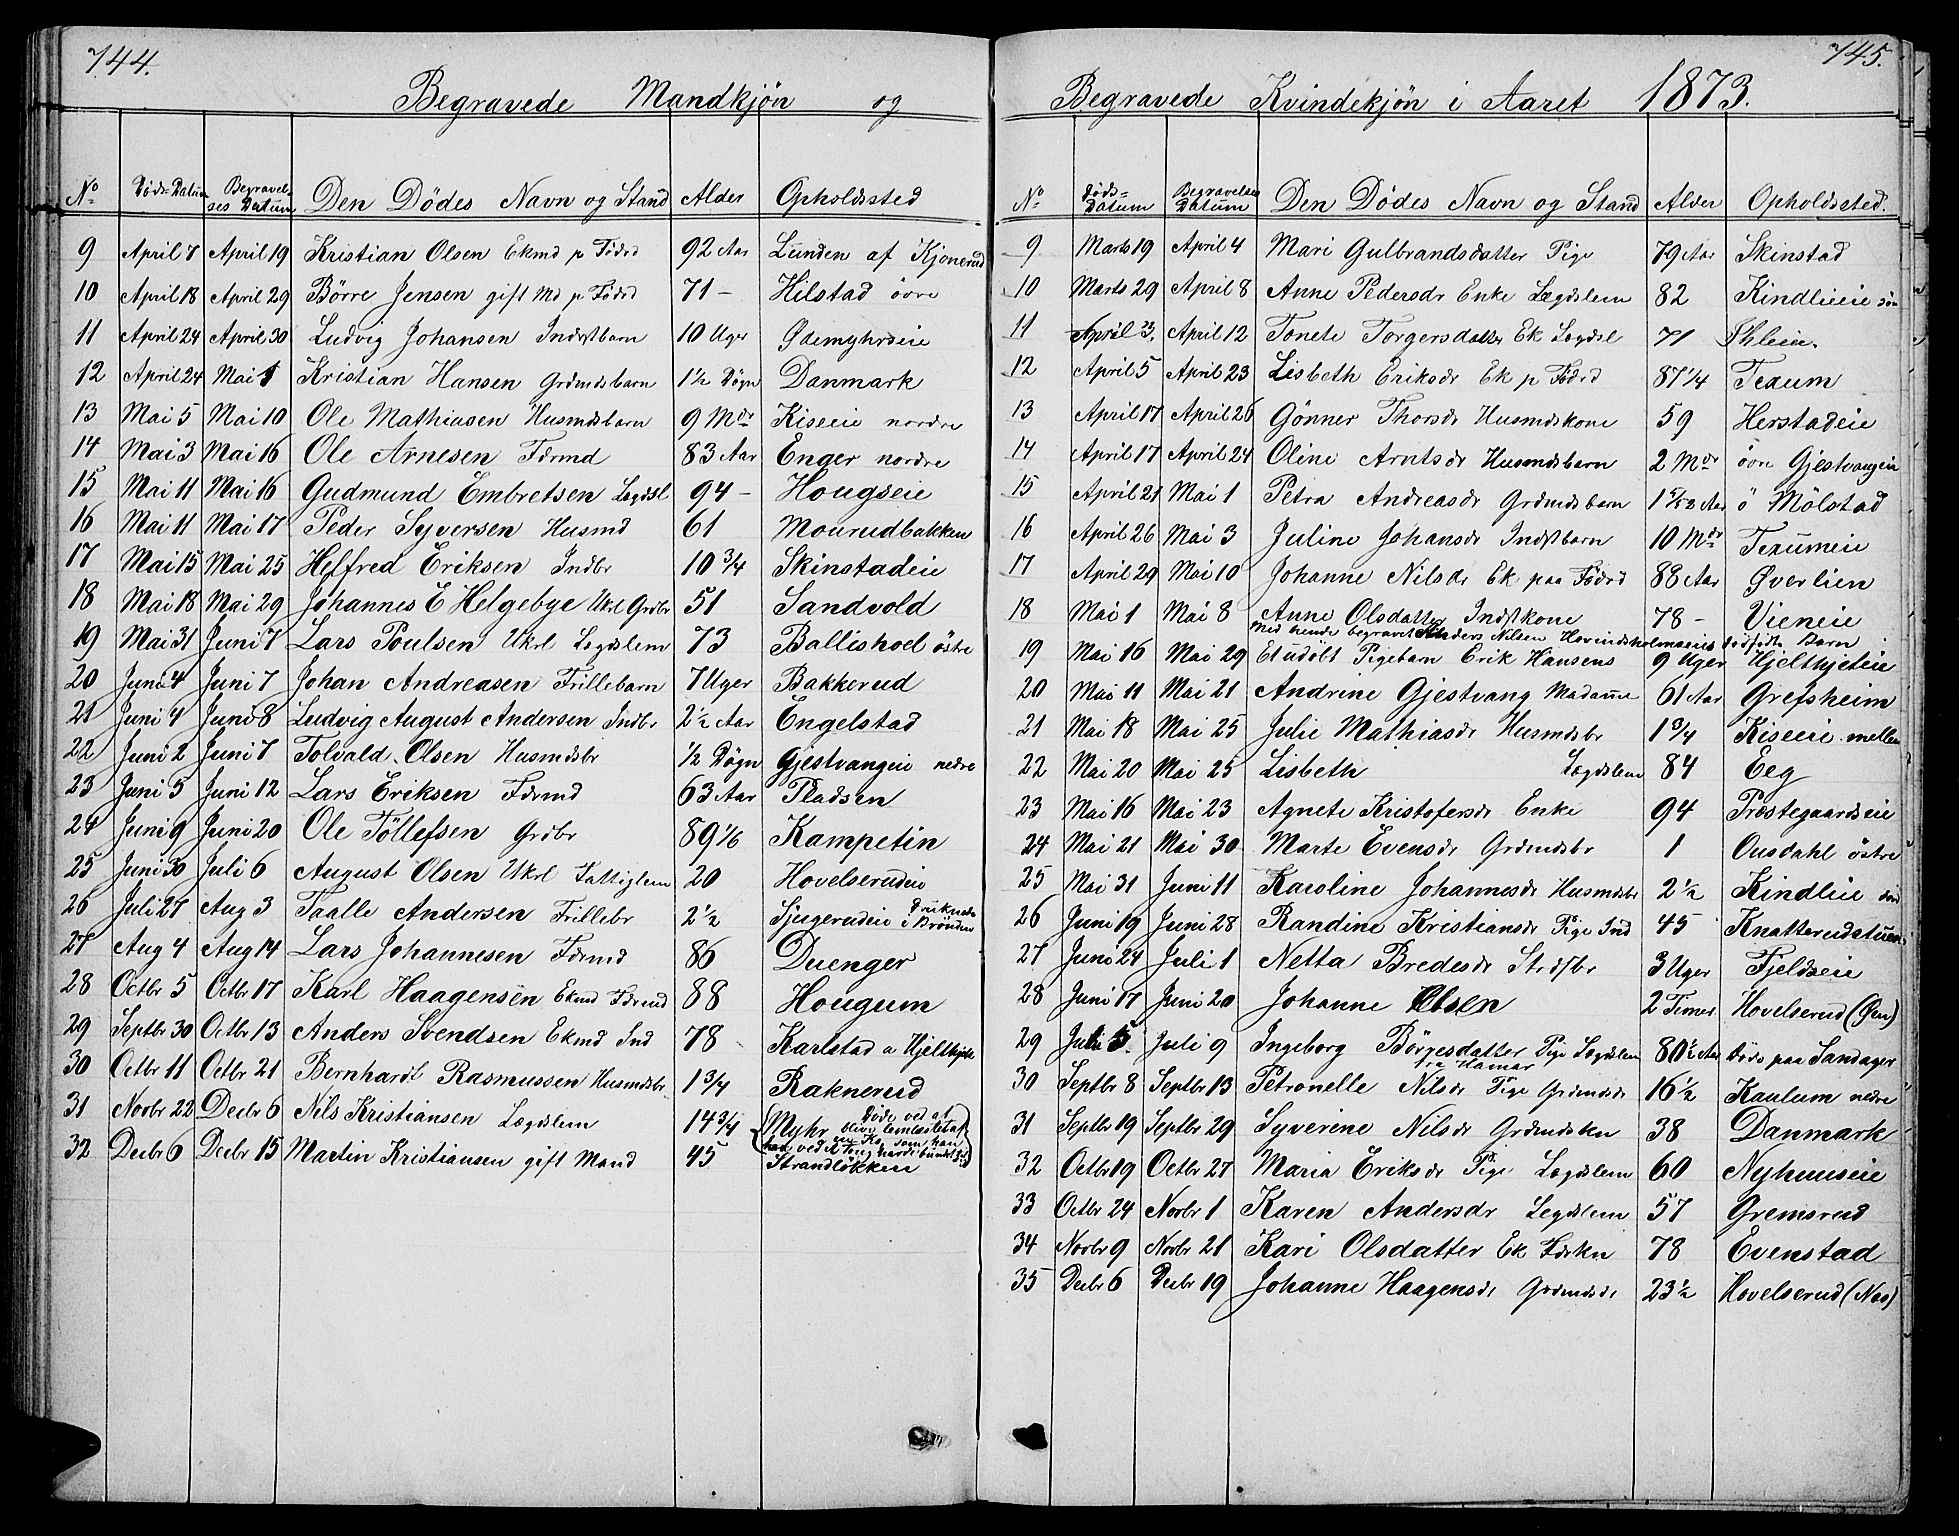 744.
Begravede Mandkjön og
No Døds-Datum Begravelses Datum Den Dödes Navn og Stand Alder Opholdssted
9 April 7 April 19 Kristian Olsen Ekmd p Födrd 92 Aar Lunden af Kjonerud
10 April 18 April 29 Börre Jensen gift Md p Födrd 71 - Hilstad övre
11 April 24 April 30 Ludvig Johansen Indstbarn 10 Uger Ødemyhrseie
12 April 24 Mai 1 Kristian Hansen Grdmdsbarn 1½ Døgn Danmark
13 Mai 5 Mai 10 Ole Mathiasen Husmdsbarn 9 Mdr Kiseeie nordre
14 Mai 3 Mai 16 Ole Arnesen Fdrmd 83 Aar Enger nordre
15 Mai 11 Mai 16 Gudmund Embretsen Lægdsl 94 - Hougseie
16 Mai 11 Mai 17 Peder Syversen Husmd 61 Mourudbakken
17 Mai 15 Mai 25 Helfred Eriksen Indbr 10 3/4 Skinstadeie
18 Mai 18 Mai 29 Johannes E Helgebye Ukrl Grdbr 51 Sandvold
19 Mai 31 Juni 7 Lars Poulsen Ukrl Lægdslem 73 Ballishoel östre
20 Juni 4 Juni 7 Johan Andreasen Frillebarn 7 Uger Bakkerud
21 Juni 4 Juni 8 Ludvig August Andersen Indbr 2½ Aar Engelstad
22 Juni 2 Juni 7 Tolvald Olsen Husmdsbr ½ Døgn Gjestvangeie nedre
23 Juni 5 Juni 12 Lars Eriksen Fdrmd 63 Aar Pladsen
24 Juni 9 Juni 20 Ole Töllefsen Grdbr 89 1/6 Kampetin
25 Juni 30 Juli 6 August Olsen Ukrl Fattiglem 20 Hovelserudeie
26 Juli 27 Aug 3 Taalle Andersen Frillebr 2½ Sjugerudeie Druknede i Brönden
27 Aug 4 Aug 14 Lars Johannesen Fdrmd 86 Duenger
28 Octbr 5 Octbr 17 Karl Haagensen Ekmd Fdrmd 88 Hougum
29 Septbr 30 Octbr 13 Anders Svendsen Ekmd Ind 78 Karlstad a Hjelthjele
30 Octbr 11 Octbr 21 Bernhardt Rasmussen Husmdsbr 1 3/4 Raknerud
31 Novbr 22 Decbr 6 Nils Kristiansen Lægdslem 14 3/4 Myhr Döde ved at blive lemlæstet af en Ko, som han
32 Decbr 6 Decbr 15 Martin Kristiansen gift Mand 45 Strandlökken
745.
Begravede Kvindekjön i Aaret 1873.
No Døds-Datum Begravelses Datum Den Dödes Navn og Stand Alder Opholdssted.
9 Marts 19 April 4 Mari Gulbrandsdatter Pige 79 Aar Skinstad
10 Marts 29 April 8 Anne Pedersdr Enke Lægdslem 82 Kindlieeie sön
11 April 23. April 12 Tonete Torgersdatter Ek Lægdsl 71 Ihleie.
12 April 5 April 23 Lisbeth Eriksdr Ek p Födrd 87 1/4 Texum
13 April 17 April 26 Gönner Thorsdr Husmdskone 59 Herstadeie
14 April 17 April 24 Oline Arntsdr Husmdsbarn 2 Mdr övre Gjestvangeie
15 April 21 Mai 1 Petra Andreasdr Grdmdsbarn 1 5/12 Aar ö Mölstad
16 April 26 Mai 3 Juline Johansdr Indstbarn 10 Mdr Texumeie
17 April 29 Mai 10 Johanne Nilsdr Ek paa Födrd 88 Aar Øverlien
18 Mai 1 Mai 8 Anne Olsdatter Indstkone 78 - Vieneie
Med hende begravet Anders Nilsen Hovindsholmseies dödfödte Barn
19 Mai 16 Mai 29 Et udöbt Pigebarn Erik Hansens 9 Uger Hjelthjeleie
20 Mai 11 Mai 21 Andrine Gjestvang Madame 61 Aar Grefsheim
21 Mai 18 Mai 25 Julie Mathiasdr Husmdsbr 1 3/4 Kiseeie mellem
22 Mai 20 Mai 25 Lisbeth Lægdslem 84 Eeg
23 Mai 16 Mai 23 Agnete Kristofersdr Enke 94 Præstegaardseie
24 Mai 21 Mai 30 Marte Evensdr Grdmdsbr 1 Ousdahl östre
25 Mai 31 Juni 11 Karoline Johannesdr Husmdsbr 2½ Kindleie
26 Juni 19 Juni 28 Randine Kristiansdr Pige Ind 45 Knatterudstuen
27 Juni 24 Juli 1 Netta Bredesdr Strdsbr 3 Uger Fjeldseie
28 Juni 17 Juni 20 Johanne Olsen 2 Timer Hovelserud (Øen)
29 Juli 5. Juli 9 Ingeborg Börgesdatter Pige Lægdslem 80½ Aar Döde paa Sandager
30 Septbr 8 Septbr 13 Petronelle Nilsdr fra Hamar Pige Grdmdsdr 16½ Kaulum nedre
31 Septbr 19 Septbr 29 Syverine Nilsdr Grdmdskn 38 Danmark
32 Octbr 19 Octbr 27 Maria Eriksdr Pige Lægdslem 60 Nyhuuseie
33 Octbr 24 Novbr 1 Karen Andersdr Legdslem 57 Gremsrud
34 Novbr 9 Novbr 21 Kari Olsdatter Ek Fdrkn 78 Evenstad
35 Decbr 6 Decbr 19 Johanne Haagensdr Grdmdsdr 23½ Hovelserud (Næs)